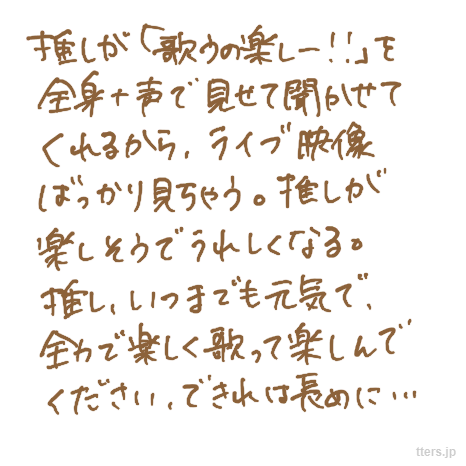 推しが「歌うの楽しー!!」を
全身+声で見せて聞かせて
くれるから、ライブ映像
ばっかり見ちゃう。推しが
楽しそうでうれしくなる。
推し、いつまでも元気で、
全力で楽しく歌って楽しんで
ください、できれば長めに…
tters.jp